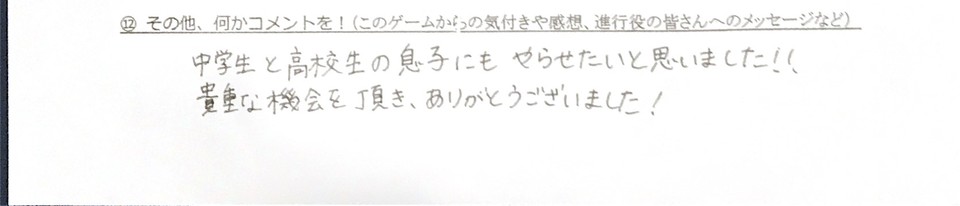 ⑫ その他、何かコメントを！（このゲームからの気付きや感想、進行役の皆さんへのメッセージなど）
中学生と高校生の息子にも やらせたいと思いました!!
貴重な機会を頂き、ありがとうございました！